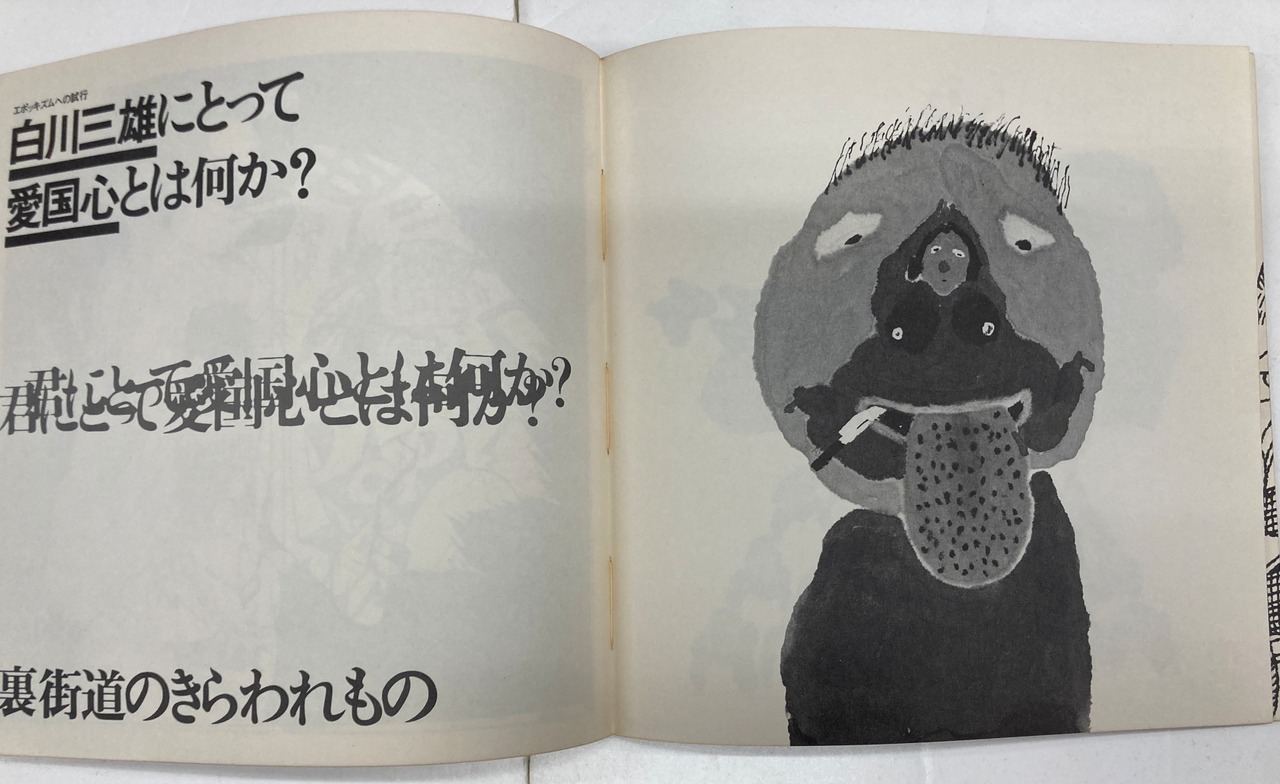 エポッキズムへの試行
白川三雄にとって
愛国心とは何か?
君にとって愛国心とは何か?
裏街道のきらわれもの